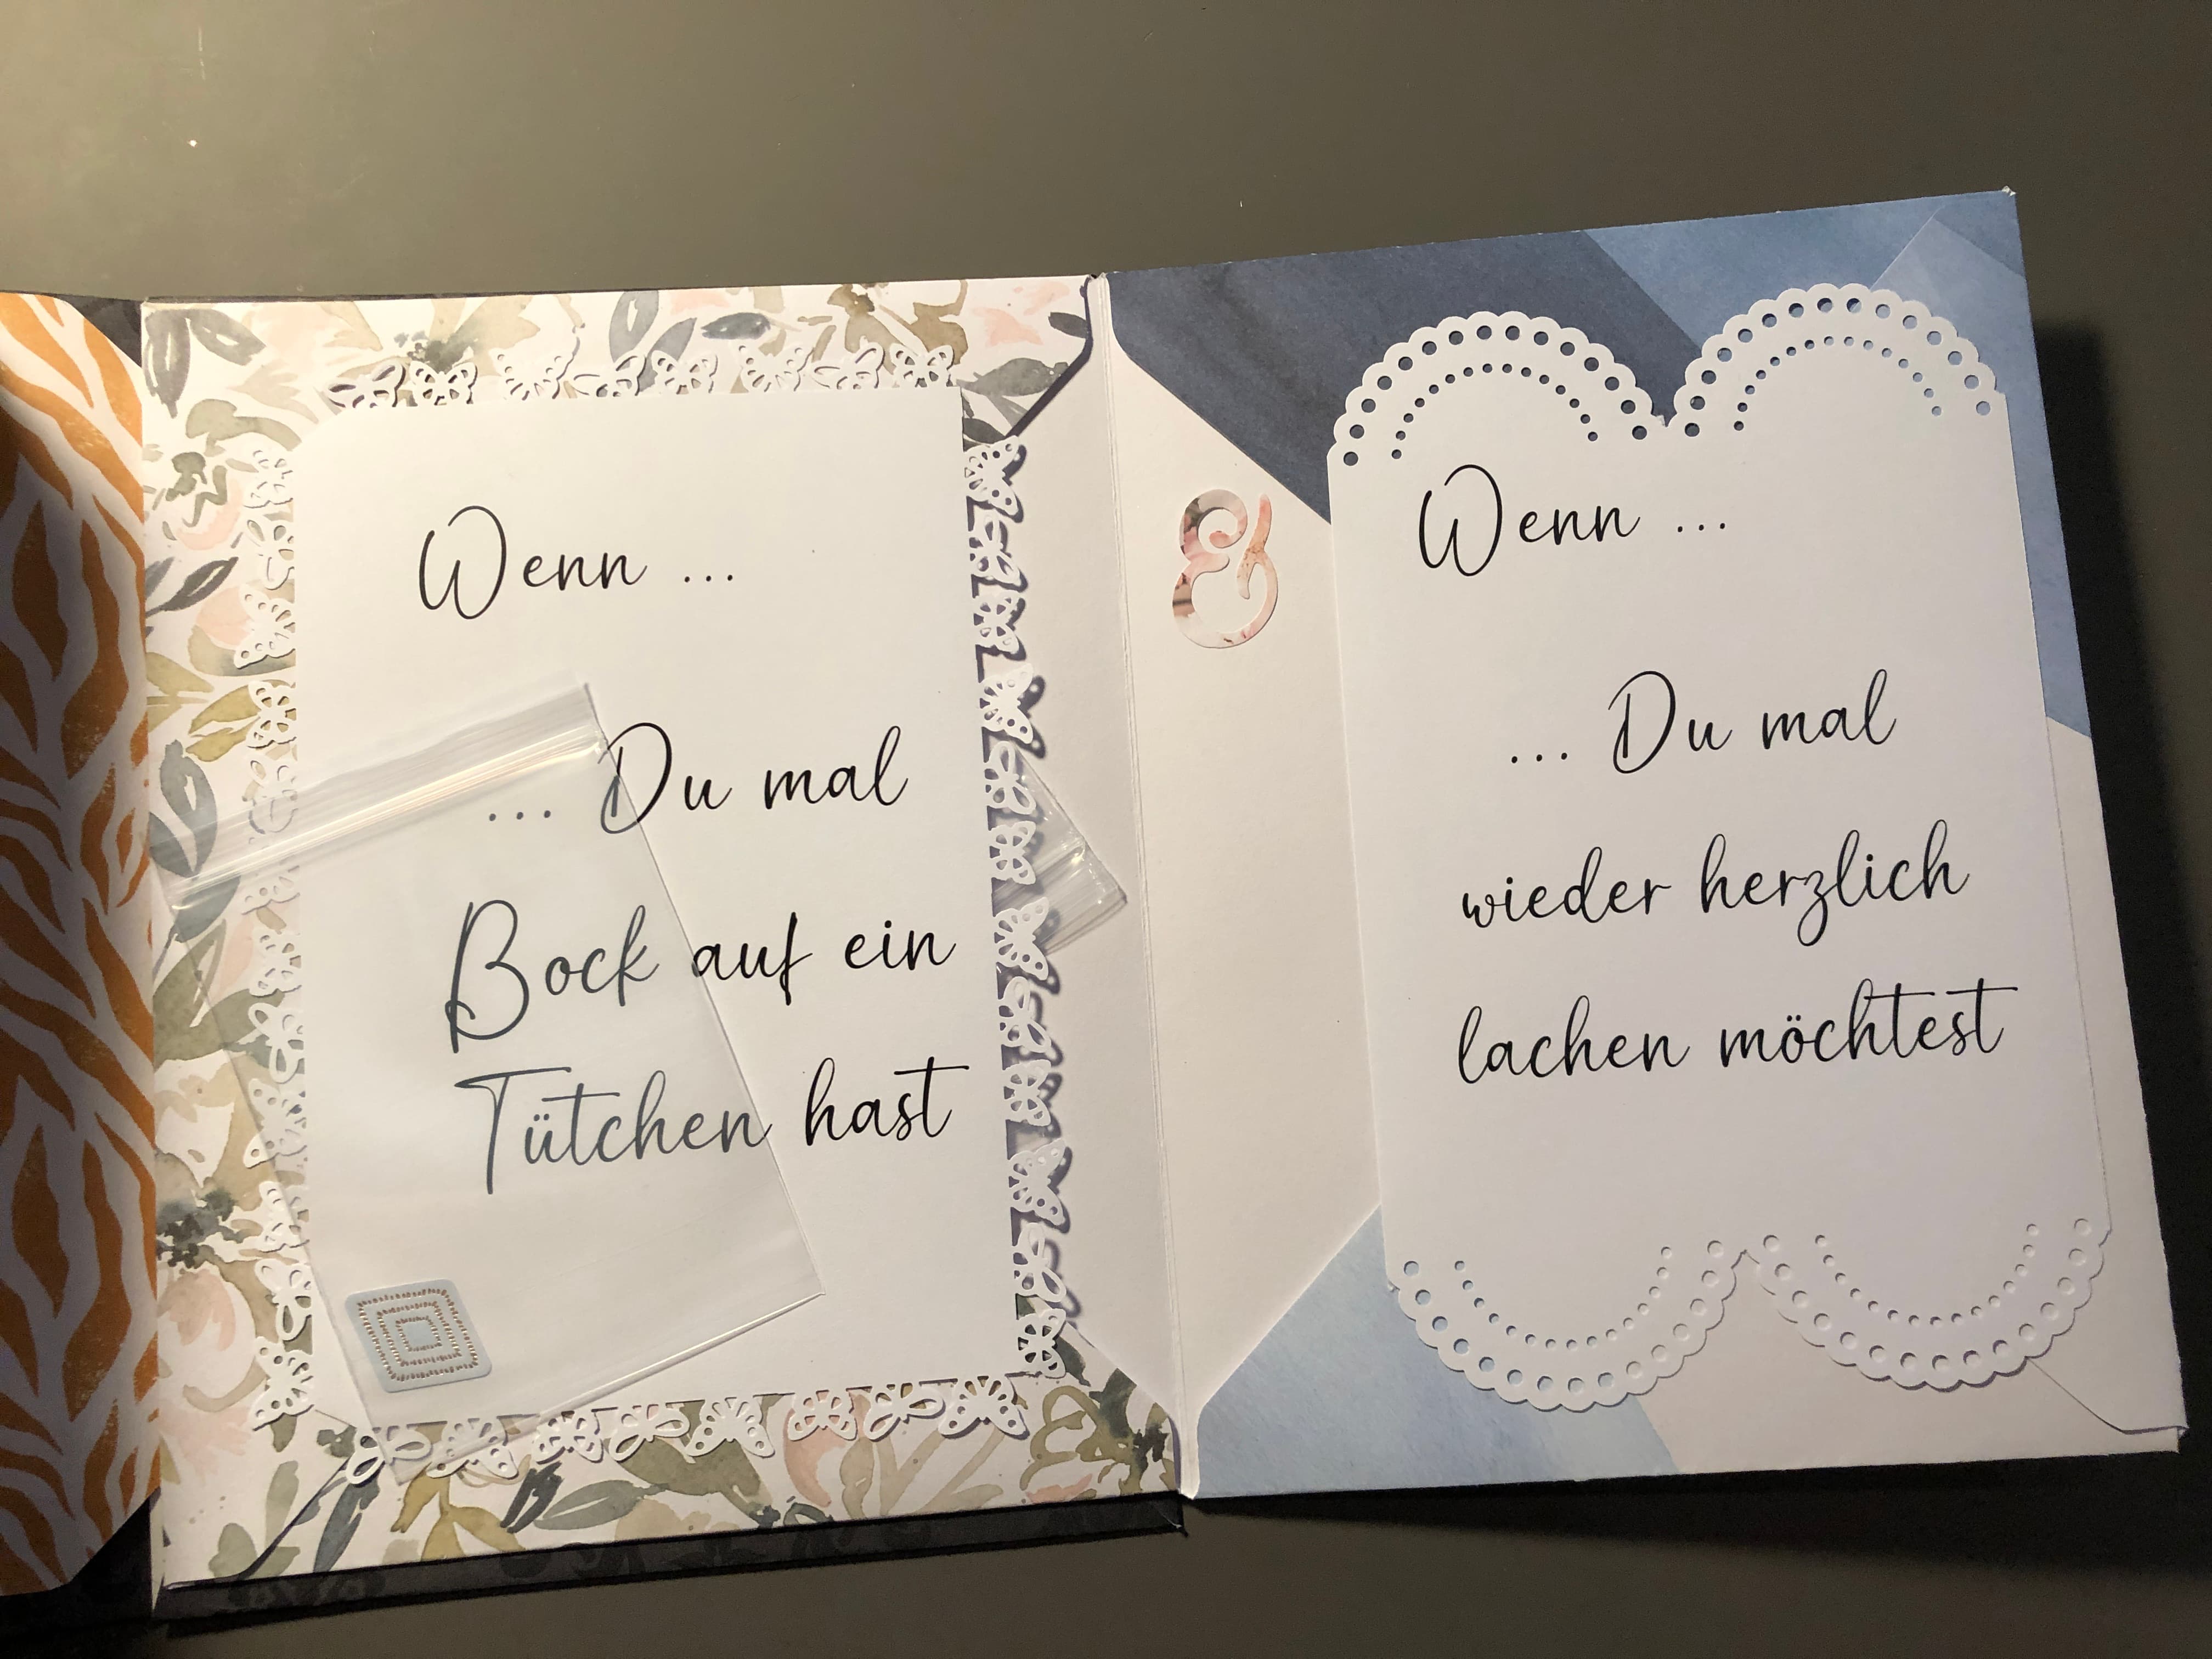 Wenn ...
... Du mal
Bock auf ein
Tütchen hast
&
Wenn ...
... Du mal
wieder herzlich
lachen möchtest